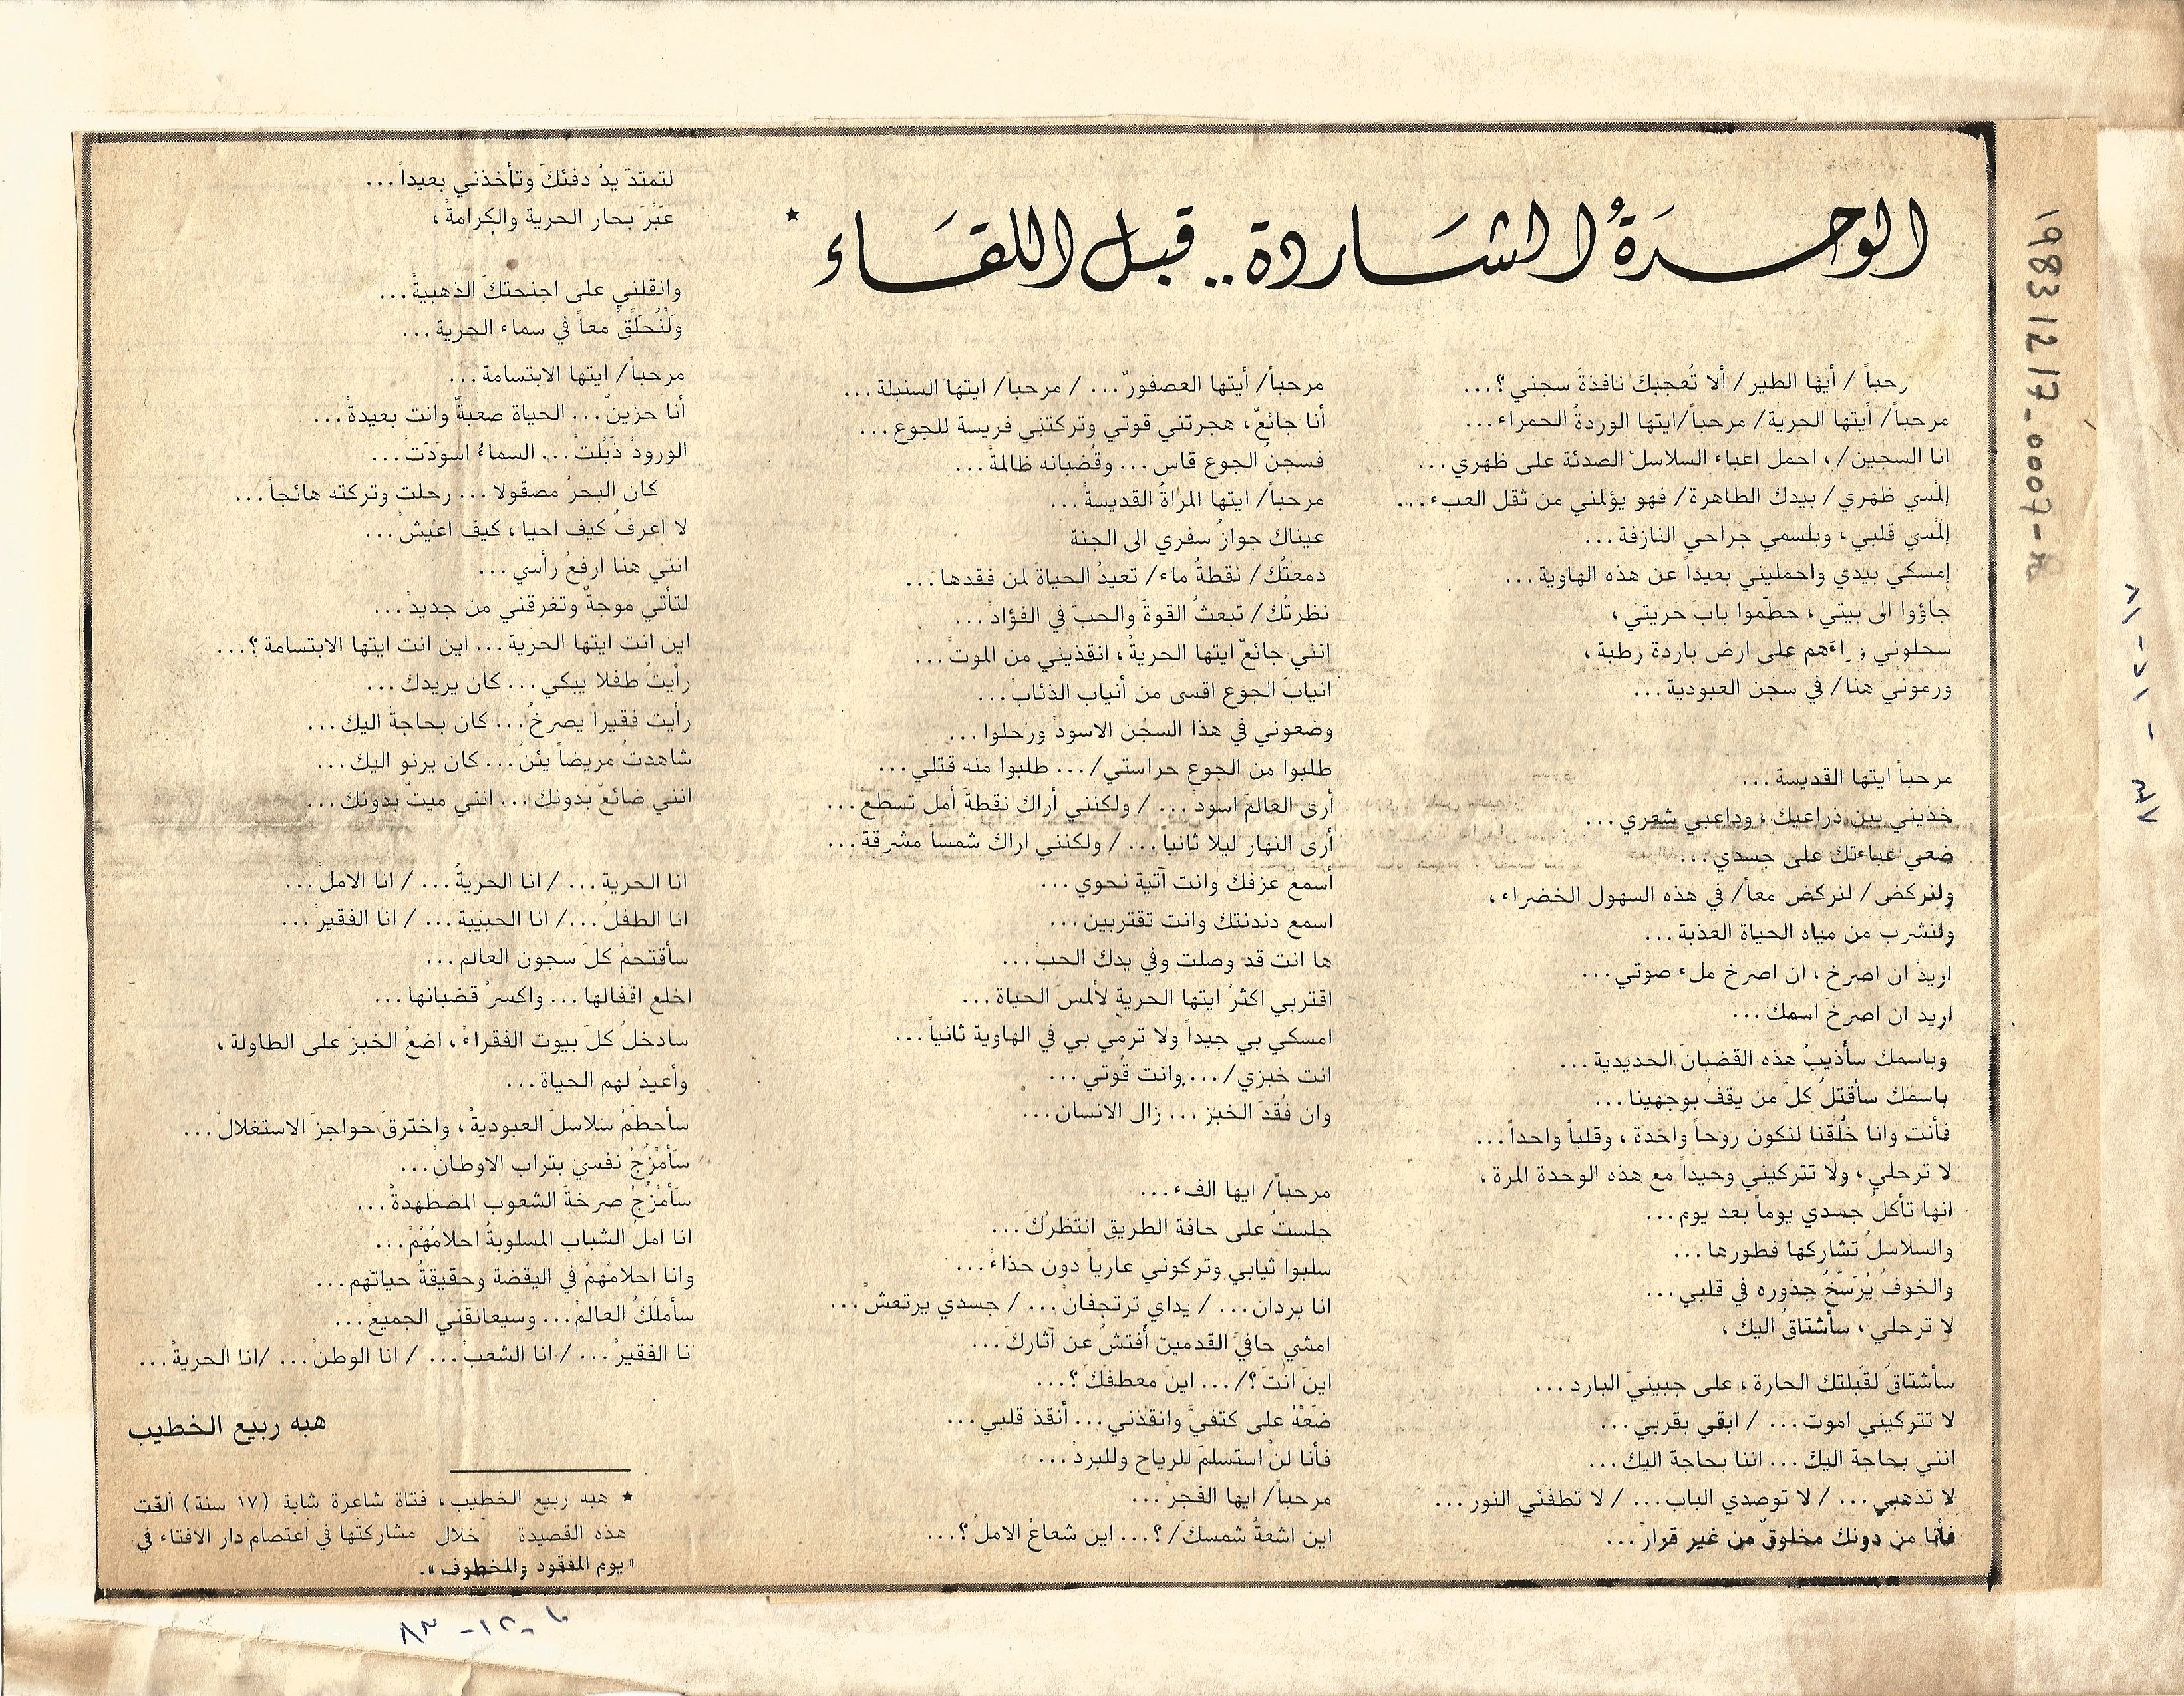 الوحدَةُ الشاردة.. قبل اللقاء ★
رحباً / أيها الطير/ ألا تُعجبكَ نافذةَ سجني؟...
مرحباً/ أيتها الحرية/ مرحباً/ايتها الوردةُ الحمراء...
انا السجين/، احمل اعباء السلاسل الصدئة على ظهري...
إلمُسي ظهري/ بيدك الطاهرة/ فهو يؤلمني من ثقل العبء...
إلمُسي قلبي، وبلسمي جراحي النازفة...
إمسكي بيدي واحمليني بعيداً عن هذه الهاوية...
جاؤوا الى بيتي، حطّموا بابَ حريتي،
سحلوني على ارض باردة رطبة،
ورموني هنا/ في سجن العبودية...
مرحباً ايتها القديسة...
خذيني بين ذراعيك، وداعبي شعري...
ضعي عباءتك على جسدي...
ولنركض/ لنركض معاً/ في هذه السهول الخضراء،
ولنشرب من مياه الحياة العذبة...
اريدُ ان اصرخ، ان اصرخ ملء صوتي...
اريد ان اصرخَ اسمك...
وباسمك سأذيبُ هذه القضبانَ الحديدية...
باسمك سأقتلُ كلَّ من يقفُ بوجهينا...
فأنت وانا خُلقنا لنكون روحاً واحدة، وقلباً واحداً...
لا ترحلي، ولا تتركيني وحيداً مع هذه الوحدة المرة،
انها تأكلُ جسدي يوماً بعد يوم...
والسلاسلُ تشاركها فطورها...
والخوفُ يُرَسّخُ جذوره في قلبي...
لا ترحلي، سأشتاقُ اليك،
سأشتاقُ لقَبلتك الحارة، على جبينيَ البارد...
لا تتركيني اموت... / ابقي بقربي...
انني بحاجة اليك... اننا بحاجة اليك...
لا تذهبي... / لا توصدي الباب... / لا تطفئي النور...
فأنا من دونك مخلوقٌ من غير قرارْ...
مرحباً/ أيتها العصفورّ... / مرحباً/ ايتها السنبلة...
أنا جائعٌ، هجرتني قوتي وتركتني فريسة للجوع...
فسجنُ الجوع قاسٍ... وقضبانه ظالمةْ...
مرحباً/ ايتها المرأةُ القديسةْ...
عيناك جوازُ سفري الى الجنة
دمعتُك/ نقطةُ ماء/ تعيدُ الحياة لمن فقدها...
نظرتُك/ تبعثُ القوةَ والحبَ في الفؤادْ...
إنني جائعٌ ايتها الحريةْ، انقذيني من الموتْ...
انيابَ الجوع اقسى من أنياب الذئاب...
وضعوني في هذا السجن الاسود ورحلوا...
طلبوا من الجوع حراستي/... طلبوا منه قتلي...
أرى العالمَ اسودْ... / ولكنني أراك نقطةَ أمل تسطع...
أرى النهار ليلا ثانياً... / ولكنني اراك شمساً مشرقة...
أسمع عزفك وانت آتية نحوي...
اسمع دندنتك وانت تقتربين...
ها انت قد وصلت وفي يدك الحبْ...
اقتربي اكثرْ ايتها الحرية لألمسَ الحياة...
امسكي بي جيداً ولا ترمي بي في الهاوية ثانياً...
انت خبزي/... وانت قُوتي...
وان فُقدَ الخبز... زال الانسان...
مرحباً/ ايها الفء...
جلستُ على حافة الطريق انتظرُك...
سلبوا ثيابي وتركوني عارياً دون حذاءْ...
انا بردان... / يداي ترتجفانْ... / جسدي يرتعشْ...
امشي حافيَ القدمين أفتشُ عن آثارك...
اينَ انتَ؟/... اينَ معطفَكَ؟...
ضَعْهُ على كتفيَّ وانقذني... أنقذ قلبي...
فأنا لنْ استسلمَ للرياح وللبردْ...
مرحباً/ ايها الفجرْ...
اين اشعةُ شمسكَ/ ؟... اين شعاعُ الاملْ؟...
لتمتدّ يدُ دفئكَ وتأخذني بعيداً...
عَبْرَ بحار الحرية والكرامةْ،
وانقلني على اجنحتكَ الذهبيةْ...
ولْنُحَلِّقْ معاً في سماء الحرية...
مرحباً/ ايتها الابتسامة...
أنا حزينٌ... الحياة صعبةٌ وانت بعيدةْ...
الورودُ ذَبُلتْ... السماءُ اسوَدّتْ...
كان البحرُ مصقولا... رحلت وتركته هائجاً...
لا اعرفُ كيف احيا، كيف اعيشْ...
انني هنا ارفعُ رأسي...
لتأتي موجةٌ وتغرقني من جديدْ...
اين انت ايتها الحرية... اين انت ايتها الابتسامة؟...
رأيتُ طفلا يبكي... كان يريدك...
رأيت فقيراً يصرخُ... كان بحاجة اليك...
شاهدتُ مريضاً يئنُ... كان يرنو اليك...
انني ضائعٌ بدونك... انني ميتٌ بدونك...
انا الحرية... / انا الحريةُ... / انا الاملْ...
انا الطفلُ.../ انا الحبيبة... / انا الفقيرْ...
سأقتحمُ كلَ سجون العالمْ...
اخلع اقفالها... واكسرُ قضبانها...
سادخلُ كلَ بيوت الفقراءْ، اضعُ الخبزَ على الطاولة،
وأعيدُ لهم الحياة...
سأحطمُ سلاسلَ العبوديةْ، واخترقَ حواجزَ الاستغلالْ...
سَأمْزُجُ نفسيَ بتراب الاوطانْ...
سَأمْزُجُ صرخةَ الشعوب المضطهدةْ...
انا املُ الشباب المسلوبةُ احلامُهُمْ...
وانا احلامُهُمْ في اليقضة وحقيقةُ حياتهم...
سأملُكُ العالمْ... وسيعانقني الجميعْ...
نا الفقيرْ... / انا الشعبْ... / انا الوطنْ... /انا الحريةْ...
هبه ربيع الخطيب
★ هبه ربيع الخطيب، فتاة شاعرة شابة (١٧ سنة) ألقت
هذه القصيدة خلال مشاركتها في اعتصام دار الافتاء في
«يوم المفقود والمخطوف».
19831217-0007-R